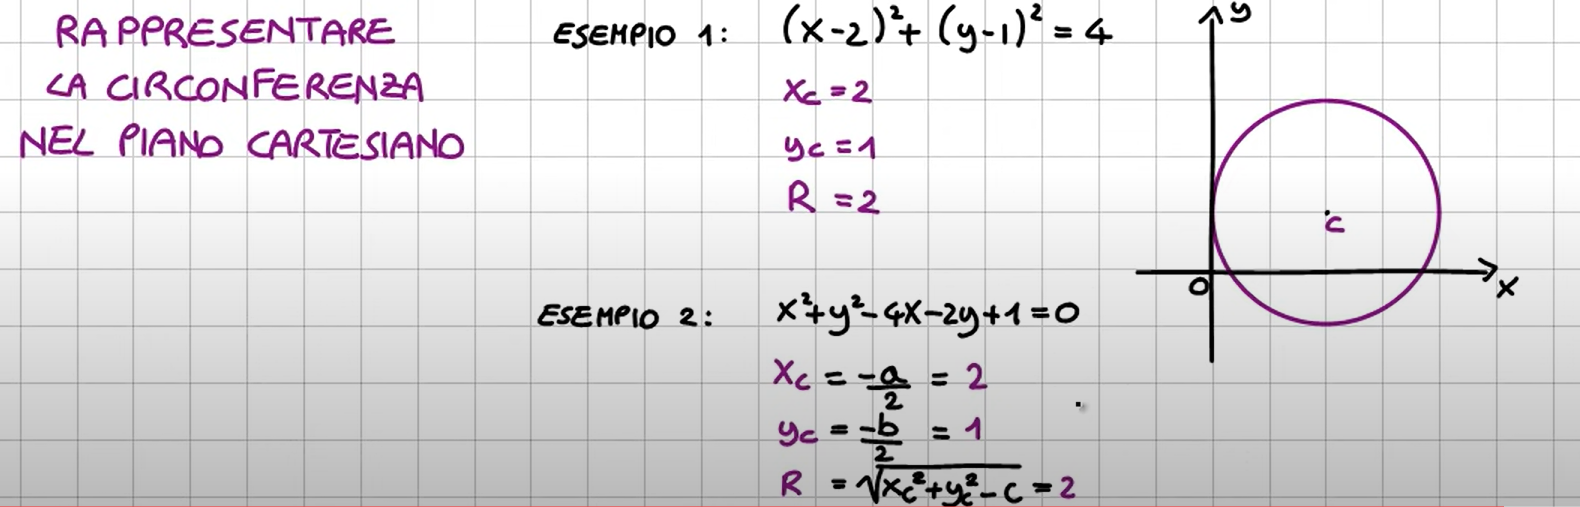 RAPPRESENTARE
LA CIRCONFERENZA
NEL PIANO CARTESIANO
ESEMPIO 1: (x-2)²+ (y-1)² = 4
xc = 2
yc = 1
R = 2
y
c
0
x
ESEMPIO 2: x²+y²-4x-2y+1=0
xc = -a/2 = 2
yc = -b/2 = 1
R = √xc²+yc²-c = 2